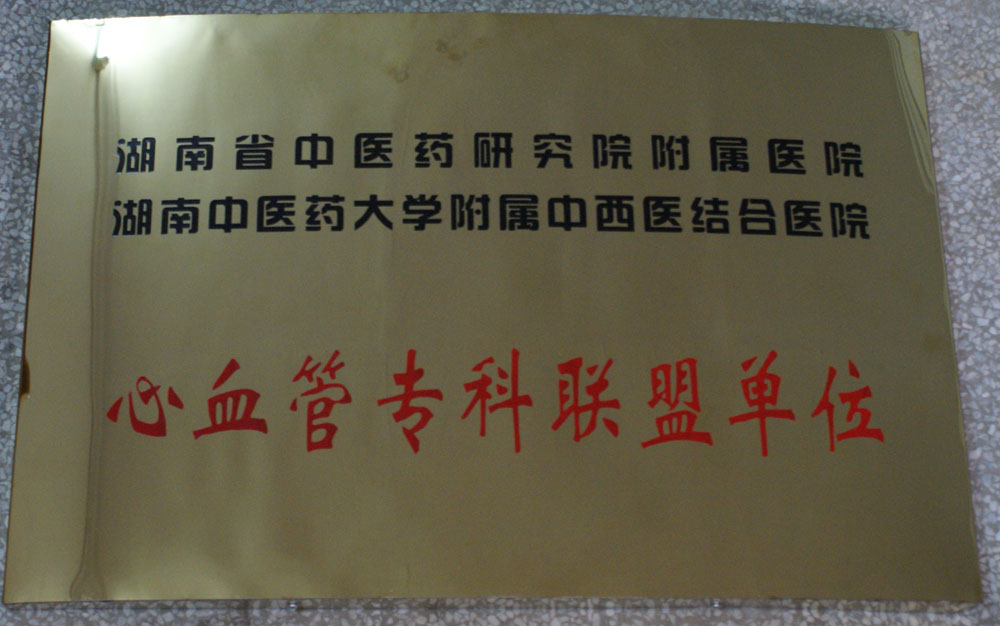 湖南省中医药研究院附属医院
湖南中医药大学附属中西医结合医院
心血管专科联盟单位